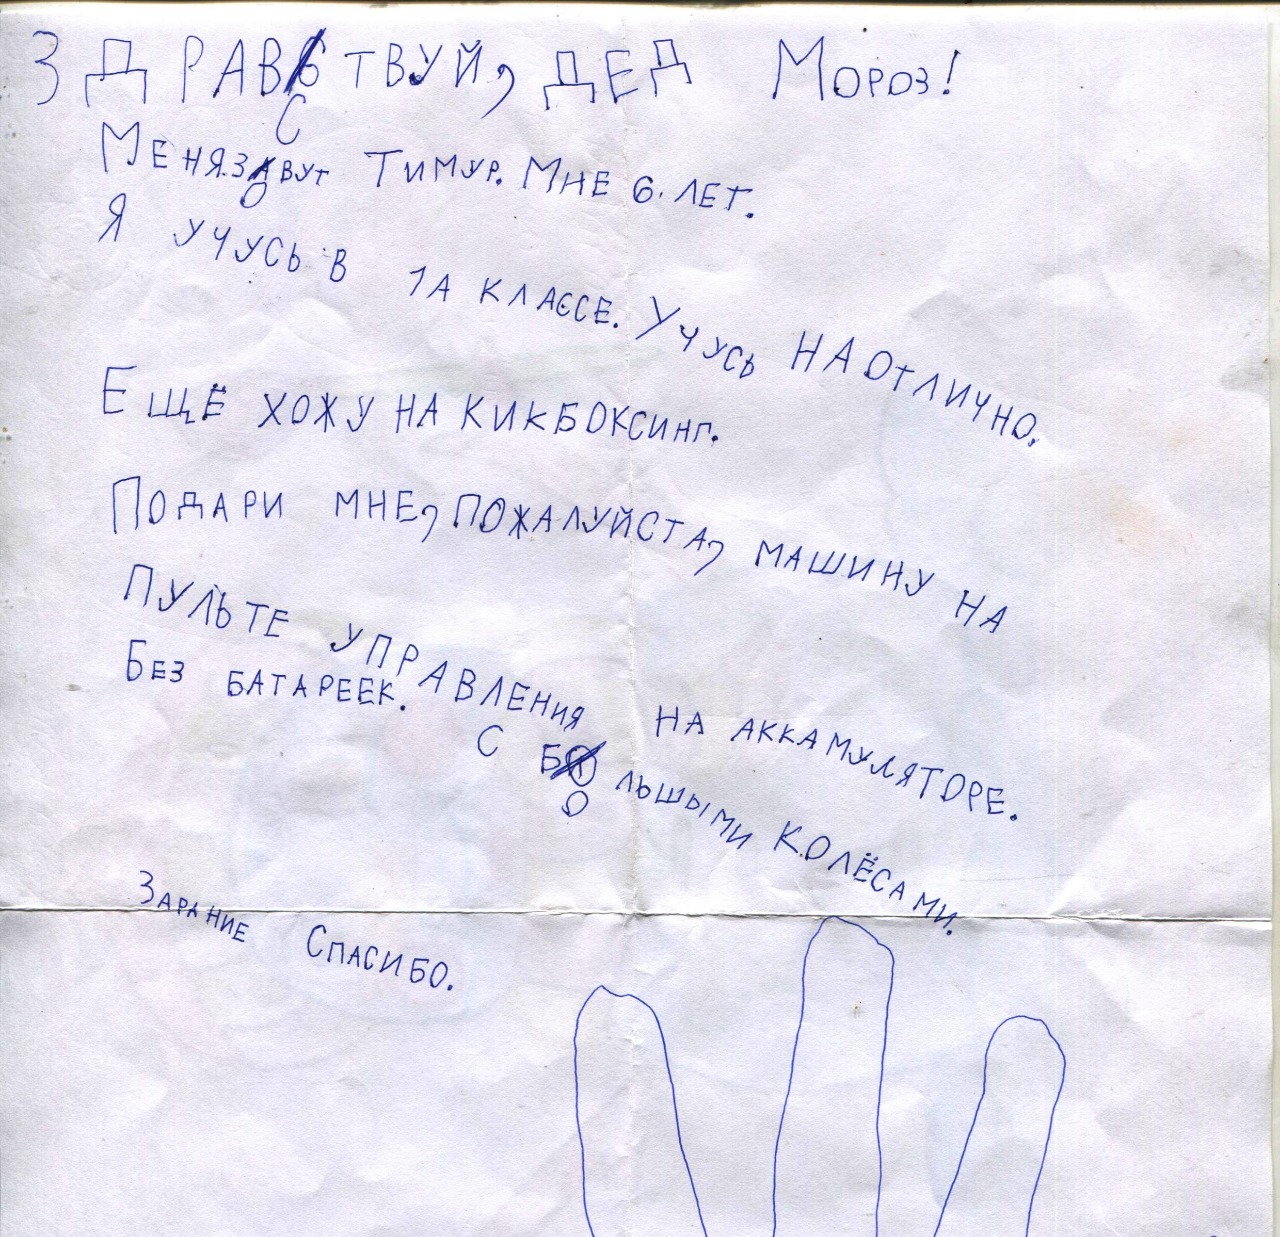 ЗДРАВСТВУЙ, ДЕД МОРОЗ!
МЕНЯ ЗОВУТ ТИМУР. МНЕ 6. ЛЕТ.
Я УЧУСЬ В 1А КЛАССЕ. УЧУСЬ НА ОТЛИЧНО.
ЕЩЁ ХОЖУ НА КИКБОКСИНГ.
ПОДАРИ МНЕ, ПОЖАЛУЙСТА, МАШИНУ НА
ПУЛЬТЕ УПРАВЛЕНИЯ НА АККАМУЛЯТОРЕ.
БЕЗ БАТАРЕЕК. С БОЛЬШЫМИ КОЛЁСАМИ.
ЗАРАНИЕ СПАСИБО.